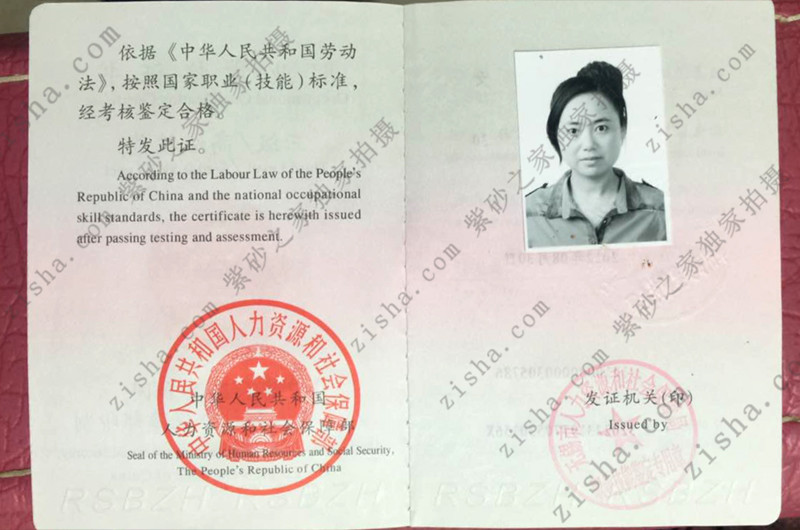 依据《中华人民共和国劳动
法》，按照国家职业（技能）标准，
经考核鉴定合格。
特发此证。
According to the Labour Law of the People's
Republic of China and the national occupational
skill standards, the certificate is herewith issued
after passing testing and assessment.
中华人民共和国人力资源和社会保障部
中华人民共和国
人力资源和社会保障部
Seal of the Ministry of Human Resources and Social Security,
The People's Republic of China
RSBZH RSBZH
发证机关(印)
Issued by
RSBZH
zisha.com 紫砂之家独家拍摄